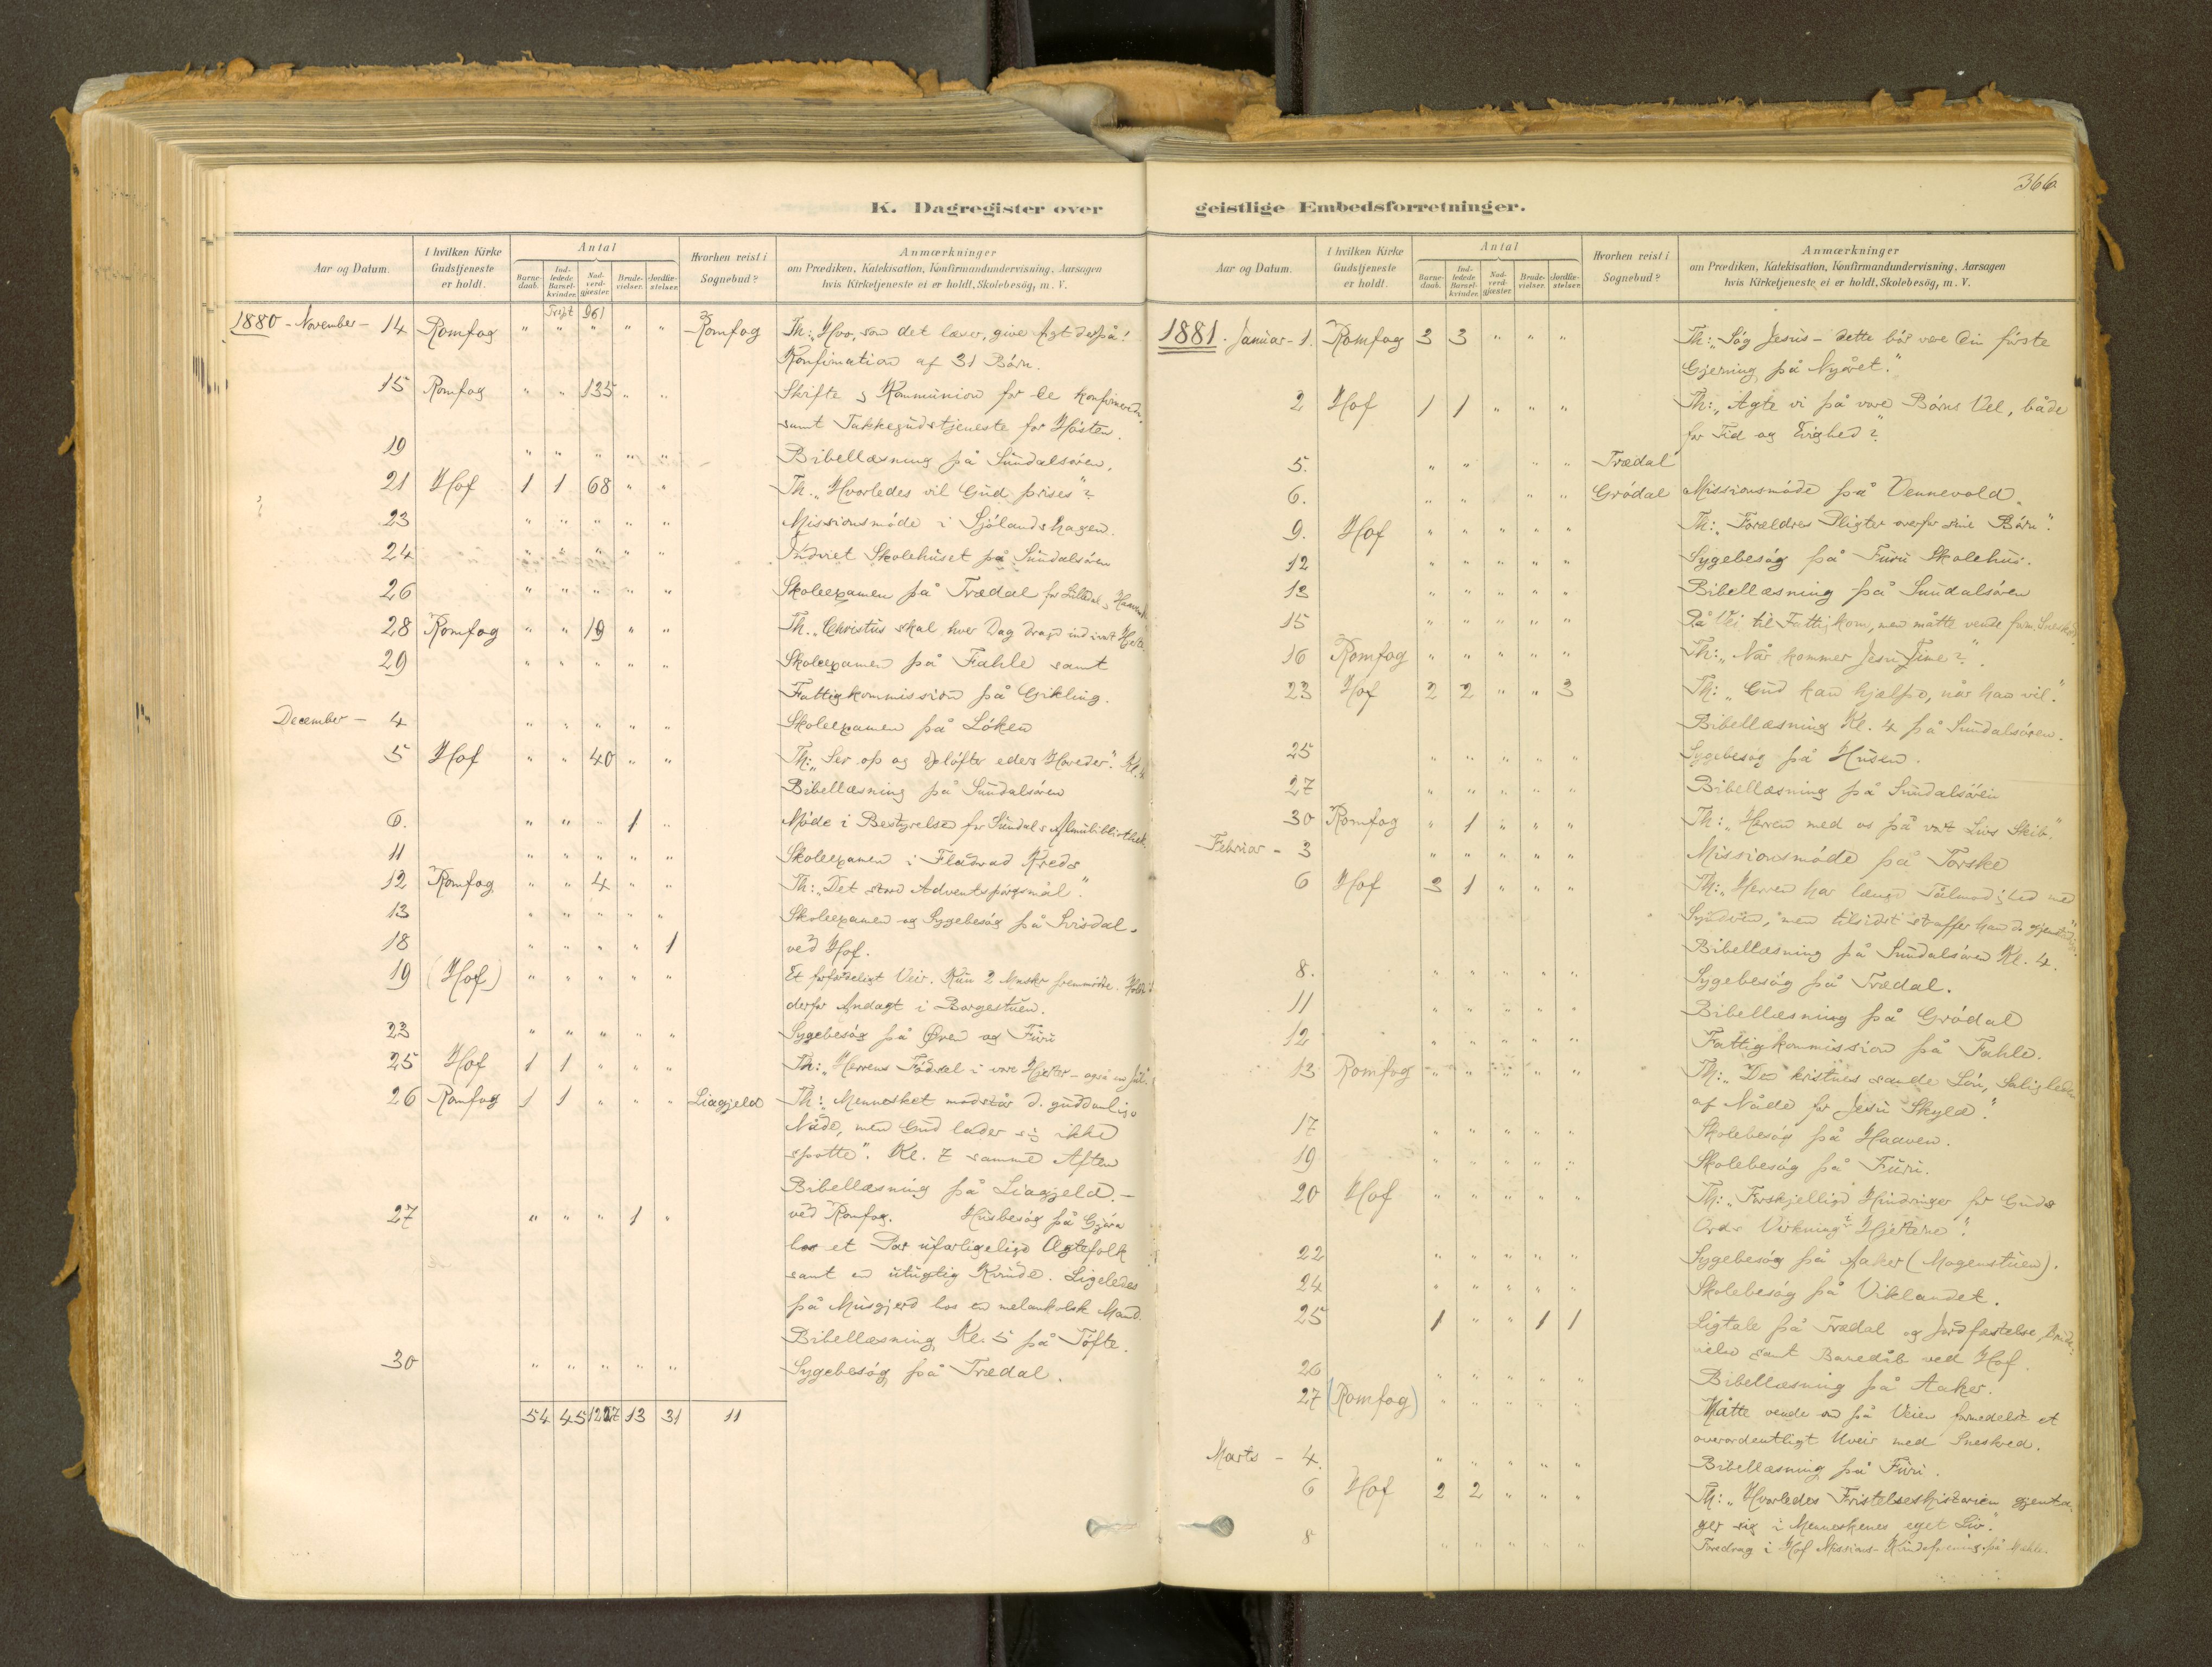 366
K. Dagregister over
Aar og Datum.
I hvilken Kirke Gudstjeneste er holdt.
Antal
Barne-daab. Ind-ledede Barsel-kvinder. Nad-verd-gjæster. Brude-vielser. Jordfæ-stelser.
Hvorhen reist i Sognebud?
Anmærkninger
om Prædiken, Katekisation, Konfirmandundervisning, Aarsagen
hvis Kirketjeneste ei er holdt, Skolebesög, m. V.
961
1880 - November - 14 Romfog " " " " " Romfog Th: "Hvo, som det læser, give Agt derpå!
Konfirmation af 31 Börn.
15 Romfog " " 135 " " Skrifte & Kommunion for de konfirmerede
samt Takkegudstjeneste for Hösten.
19 " " " " " Bibellæsning på Sundalsören.
21 Hof 1 1 68 " " Th. "Hvorledes vil Gud prises"?
23 " " " " " Missionsmöde i Sjölandshagen.
24 " " " " " Indviet Skolehuset på Sundalsören
26 " " " " " Skoleexamen på Trædal for Lilledal &
28 Romfog " " 19 " " Th. "Christus skal hver Dag drage ind i vort Hjerte.
29 " " " " " Skoleexamen på Fahle samt
Fattigkommission på Gikling.
December - 4 " " " " " Skoleexamen på Löken
5 Hof " " 40 " " Th: "Ser op og oplöfter eders Hoveder". Kl. 4
Bibellæsning på Sundalsören
6. " " " 1 " Möde i Bestyrelsen for Sundals Almubibliothek.
11 " " " " " Skoleexamen i Fladvad Kreds
12 Romfog " " 4 " " Th: "Det store Adventsspörgsmål".
13 " " " " " Skoleexamen og Sygebesög på Svisdal.
18 " " " " 1 ved Hof.
19 (Hof) " " " " " Et forfærdeligt Veir. Kun 2 Mnskr fremmödte. Holdt
derfor Andagt i Borgestuen.
23 " " " " " Sygebesög på Øren og Furu
25 Hof 1 1 " " " Th: "Herrens Födsel i vore Hjerter - også en Jul".
26 Romfog 1 1 " " " Liagjeld Th: "Mennesket modstår d. guddomlige
Nåde, men Gud lader sig ikke
spotte". Kl. 7 samme Aften
Bibellæsning på Liagjeld. -
27 " " " 1 " ved Romfog. Husbesög på Gjöra
hos et Par uforligelige Ægtefolk
samt en utugtig Kvinde. Ligeledes
på Musgjerd hos en melankolsk Mand.
Bibellæsning Kl. 5 på Töfte.
30 " " " " " Sygebesög på Trædal.
54 45 1227 13 31 11
geistlige Embedsforretninger.
Aar og Datum.
I hvilken Kirke Gudstjeneste er holdt.
Antal
Barne-daab. Ind-ledede Barsel-kvinder. Nad-verd-gjæster. Brude-vielser. Jordfæ-stelser.
Hvorhen reist i Sognebud?
Anmærkninger
om Prædiken, Katekisation, Konfirmandundervisning, Aarsagen
hvis Kirketjeneste ei er holdt, Skolebesög, m. V.
1881. Januar - 1. Romfog 3 3 " " " Th: "Søg Jesus - dette bör være din förste
Gjerning på Nyåret."
2 Hof 1 1 " " " Th: "Agte vi på vore Börns Vel, både
for Tid og Evighed?"
5. " " " " Trædal
6. " " " " Grödal Missionsmöde på Vennevold.
9. Hof " " " " " Th: "Forældres Pligter overfor sine Börn".
12 " " " " " Sygebesög på Furu Skolehus.
13 " " " " " Bibellæsning på Sundalsören
15 " " " " " På Vei til Fattigkom., men måtte vende
16 Romfog " " " " " Th: "Når kommer Jesu Time?".
23 Hof 2 2 " " 3 Th: "Gud kan hjælpe, når han vil".
Bibellæsning Kl. 4 på Sundalsören.
25 " " " " " Sygebesög på Husen.
27 " " " " " Bibellæsning på Sundalsören
30 Romfog " 1 " " " Th: "Herren med os på vort Livs Skib".
Februar - 3 " " " " " Missionsmöde på Torske
6 Hof 3 1 " " " Th: "Herren har længe Tålmodighed med
Synderen, men tilsidst straffer han d.
Bibellæsning på Sundalsören Kl. 4.
8. " " " " " Sygebesög på Trædal.
11 " " " " " Bibellæsning på Grödal
12 " " " " " Fattigkommission på Fahle.
13 Romfog " " " " " Th: "Den kristnes sande Lön, Saligheden
af Nåde for Jesu Skyld".
17 " " " " " Skolebesög på Haaven.
19 " " " " " Skolebesög på Furu.
20 Hof " " " " " Th: "Forskjellige Hindringer for Guds
Ords Virkning i Hjerterne".
22 " " " " " Sygebesög på Aaker (Mogenstuen).
24 " " " " " Skolebesög på Viklandet.
25 1 " " 1 1 Ligtale på Trædal og Jordfæstelse, Brude-
vielse samt Barnedåb ved Hof.
26 " " " " " Bibellæsning på Aaker.
27 (Romfog) " " " " " Måtte vende om på Veien formedelst et
overordentligt Uveir med Sneskred.
Marts - 4. " " " " " Bibellæsning på Furu.
6 Hof 2 2 " " " Th: "Hvorledes Fristelseshistorien gjenta-
ger sig i Menneskenes eget Liv".
8 " " " " " Foredrag i Hof Missions-Kvindeforening på